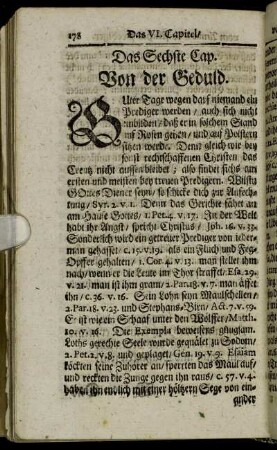 178 Das VI. Capitel/
Das Sechste Cap.
Von der Geduld.
GUter Tage wegen darf niemand ein
Prediger werden / auch sich nicht
einbilden / daß er in solchem Stand
auf Rosen gehen / und auf Polstern
sitzen werde. Denn gleich wie bey
sonst rechtschaffenen Christen das
Creutz nicht aussenbleibet; also findet sichs am
ersten und meisten bey treuen Predigern. Wilstu
GOttes Diener seyn / so schicke dich zur Anfech-
tung / Syr. 2. v. 1. Denn das Gerichte fähet an
am Hause Gottes / 1. Pet. 4. v. 17. In der Welt
habt ihr Angst / spricht Christus / Joh. 16. v. 33.
Sonderlich wird ein getreuer Prediger von jeder-
man gehasset / c. 15. v. 19. als ein Fluch und Feg-
Opffer gehalten / 1. Cor. 4. v. 13. man stellet ihm
nach / wenn er die Leute im Thor straffet / Esa. 29.
v. 21. man ist ihm gram / 2. Par. 18. v. 7. man äffet
ihn / c. 36. v. 16. Sein Lohn seyn Maulschellen /
2. Par. 18. v. 23. und Stephans-Birn / Act. 7. v. 59
Er ist wie ein Schaaf unter den Wölffen / Matth.
10. v. 16. Die Exempla beweisens gnugsam.
Loths gerechte Seele wurde gequälet zu Sodom /
2. Pet. 2. v. 8. und geplaget / Gen. 19. v. 9. Esaiam
höckten seine Zuhörer an / sperreten das Maul auf /
und reckten die Zunge gegen ihn raus / c. 57. v. 4.
haben ihn endlich mit einer höltzern Sege von ein-
ander